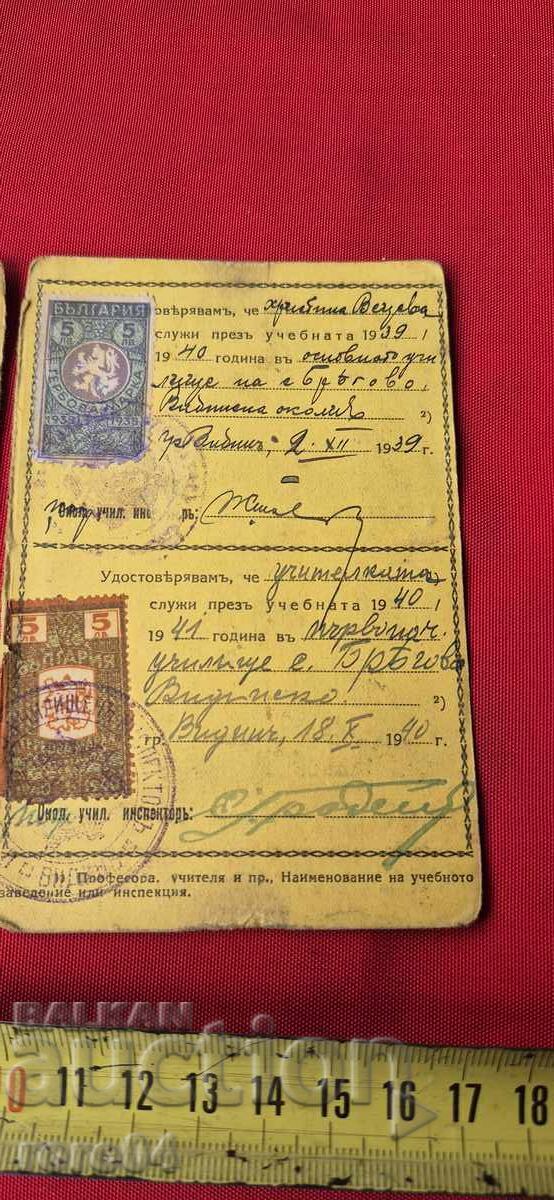 БЪЛГАРИЯ
5 5
ЛВ. ЛВ.
ГЕРБОВА МАРКА
1938
овѣрявамъ, че
служи презъ учебната 1939 /
1940 година въ основното учи
лище на с. Брѣгово,
Видинска околия 2)
гр. Видинъ, 2. XII 1939 г.
Окол. учил. инспекторъ:
Удостовѣрявамъ, че учителката
служи презъ учебната 1940 /
1941 година въ първонач.
училище с. Брѣгово
Видинско 2)
гр. Видинъ, 18. X 1940 г.
5 5
ЛВ ЛВ
Окол. учил. инспекторъ:
1) Професора, учителя и пр., Наименование на учебното
заведение или инспекция.
BALKAN
auction
rere04
0 11 12 13 14 15 16 17 18